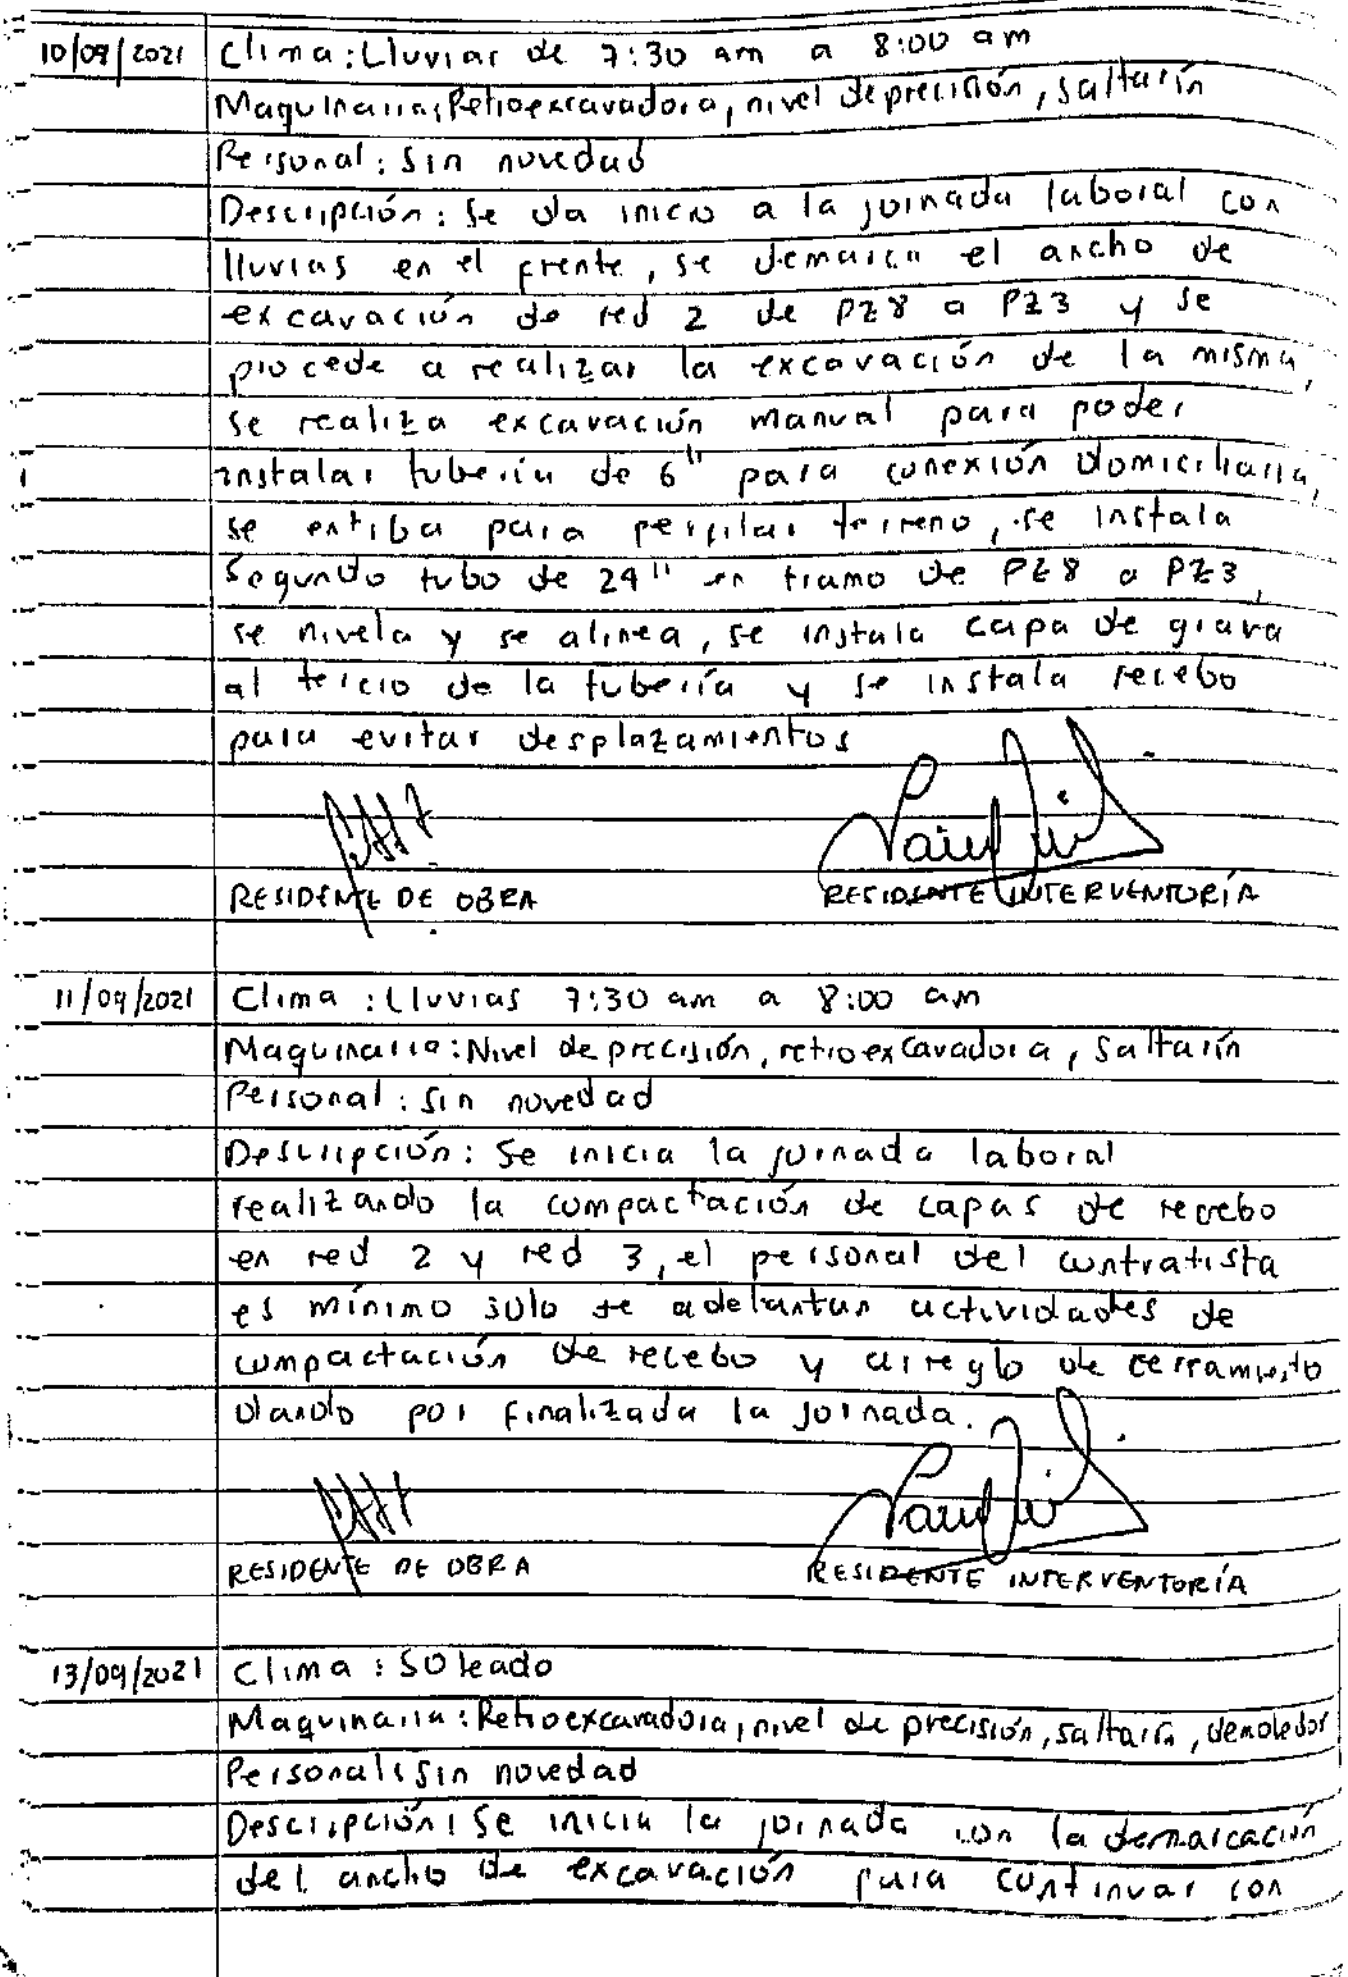 10/09/2021 Clima: Lluvias de 7:30 am a 8:00 am
Maquinaria: Retroexcavadora, nivel de precisión, saltarín
Personal: Sin novedad
Descripción: Se da inicio a la jornada laboral con
lluvias en el frente, se demarca el ancho de
excavación de red 2 de PZ8 a PZ3 y se
procede a realizar la excavación de la misma,
se realiza excavación manual para poder
instalar tubería de 6" para conexión domiciliaria,
se entiba para perfilar terreno, se instala
segundo tubo de 24" en tramo de PZ8 a PZ3,
se nivela y se alinea, se instala capa de grava
al tercio de la tubería y se instala recebo
para evitar desplazamientos
RESIDENTE DE OBRA RESIDENTE INTERVENTORÍA
11/09/2021 Clima: Lluvias 7:30 am a 8:00 am
Maquinaria: Nivel de precisión, retroexcavadora, saltarín
Personal: Sin novedad
Descripción: Se inicia la jornada laboral
realizando la compactación de capas de recebo
en red 2 y red 3, el personal del contratista
es mínimo solo se adelantan actividades de
compactación de recebo y arreglo de cerramiento
dando por finalizada la jornada.
RESIDENTE DE OBRA RESIDENTE INTERVENTORÍA
13/09/2021 Clima: Soleado
Maquinaria: Retroexcavadora, nivel de precisión, saltarín, demoledor
Personal: Sin novedad
Descripción: Se inicia la jornada con la demarcación
del ancho de excavación para continuar con